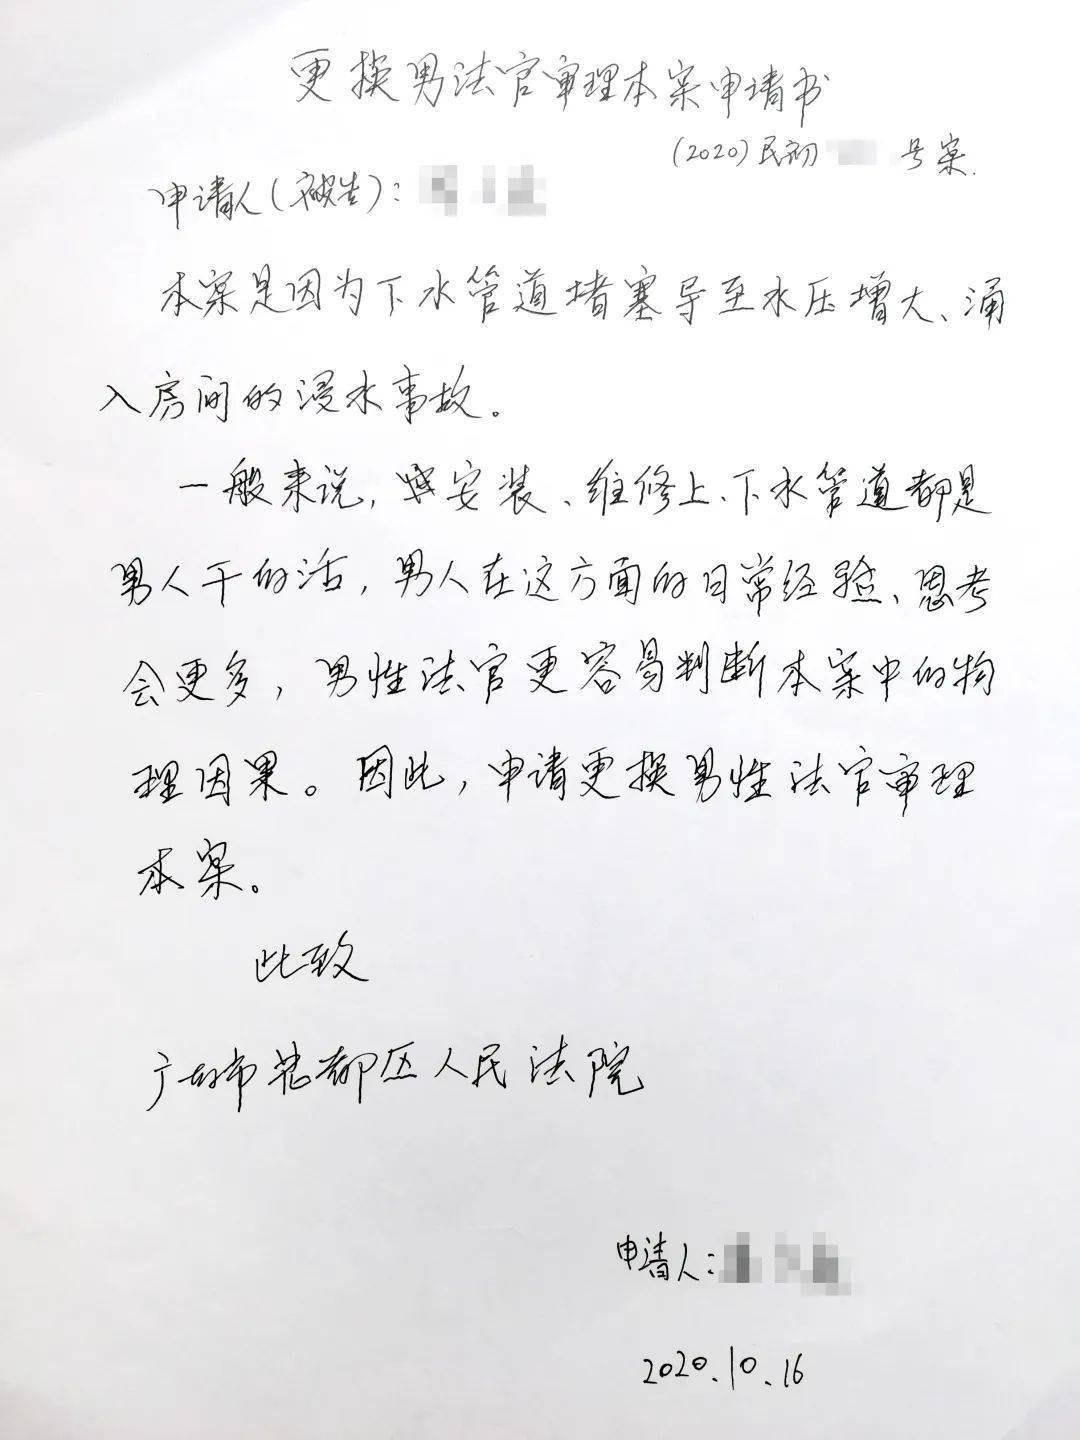 更换男法官审理本案申请书
(2020)民初 号案.
申请人(被告):
本案是因为下水管道堵塞导至水压增大、涌
入房间的浸水事故。
一般来说,安装、维修上、下水管道都是
男人干的活,男人在这方面的日常经验、思考
会更多,男性法官更容易判断本案中的物
理因果。因此,申请更换男性法官审理
本案。
此致
广州市花都区人民法院
申请人:
2020.10.16